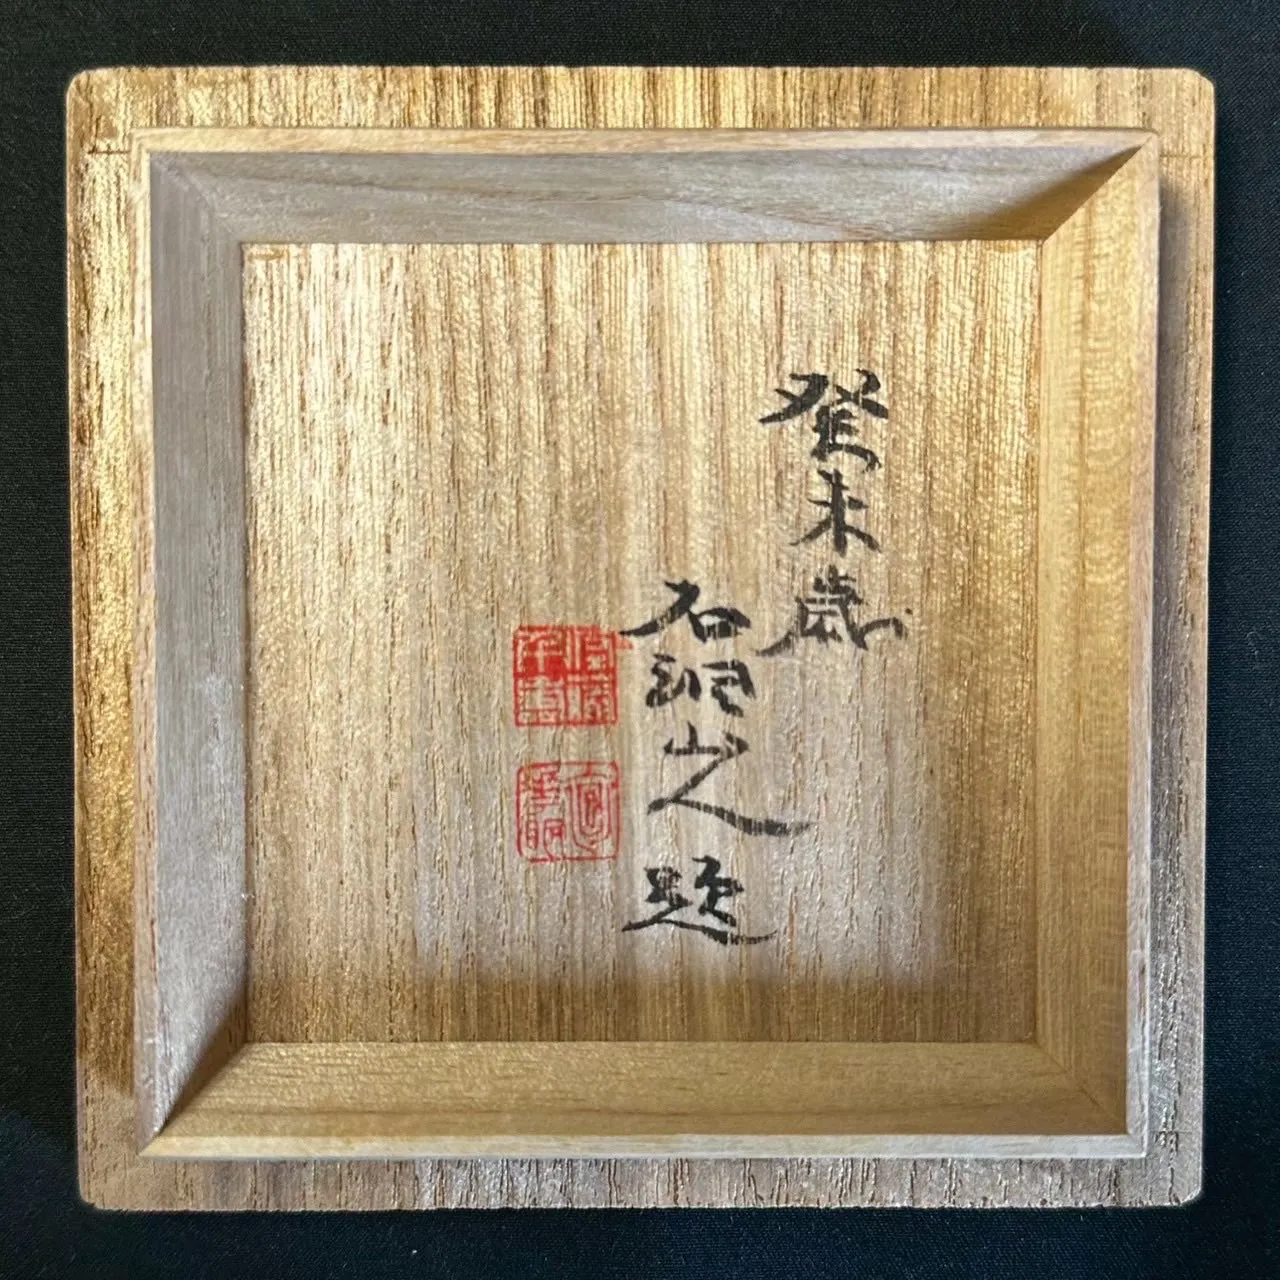 癸未歳
石洞山人
題